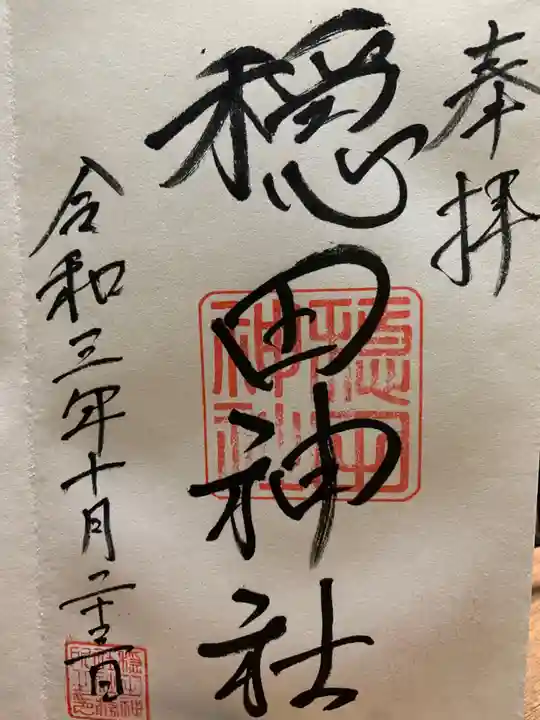 奉拝
穏田神社
穏田
神社
令和三年十月二十日